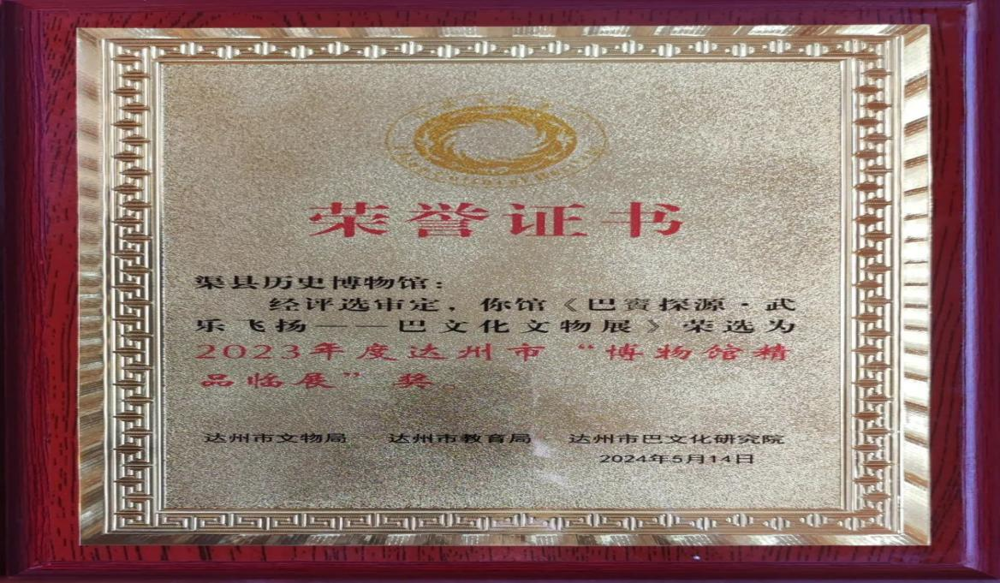 荣誉证书
渠县历史博物馆：
经评选审定，你馆《巴賨探源·武
乐飞扬——巴文化文物展》荣选为
2023年度达州市“博物馆精
品临展”奖。
达州市文物局 达州市教育局 达州市巴文化研究院
2024年5月14日